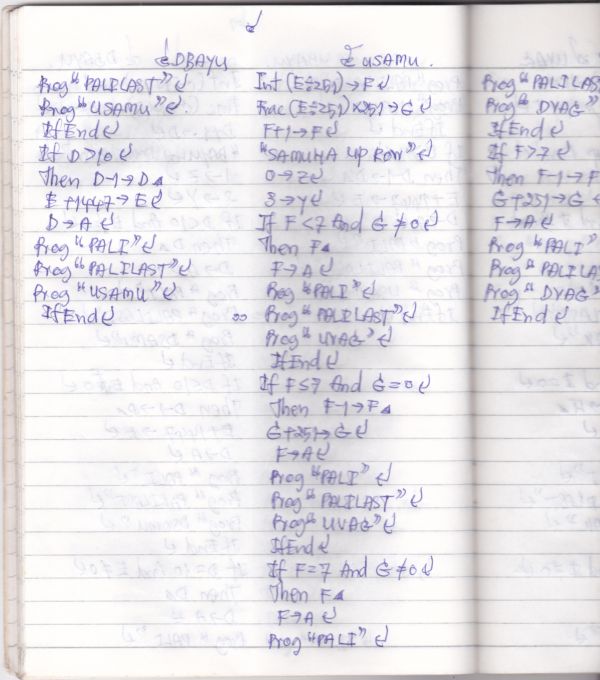 DBAYU
Prog "PALILAST"↵
Prog "USAMU"↵.
IfEnd↵
If D>10↵
Then D-1→D◢
E+1447→E↵
D→A↵
Prog "PALI"↵
Prog "PALILAST"↵
Prog "USAMU"↵
IfEnd↵
USAMU.
Int(E÷251)→F↵
Frac(E÷251)×251→G↵
F+1→F↵
"SAMUHA UP ROW"↵
0→Z↵
3→Y↵
If F<7 And G≠0↵
Then F◢
F→A↵
Prog "PALI"↵
Prog "PALILAST"↵
Prog "UVAG"↵
IfEnd↵
If F≤7 And G=0↵
Then F-1→F◢
G+251→G↵
F→A↵
Prog "PALI"↵
Prog "PALILAST"↵
Prog "UVAG"↵
IfEnd↵
If F=7 And G≠0↵
Then F◢
F→A↵
Prog "PALI"↵
Prog "PALILAS
Prog "DVAG"
IfEnd↵
If F>7↵
Then F-1→F
G+251→G
F→A↵
Prog "PALI"
Prog "PALILA
Prog "DVAG"
IfEnd↵